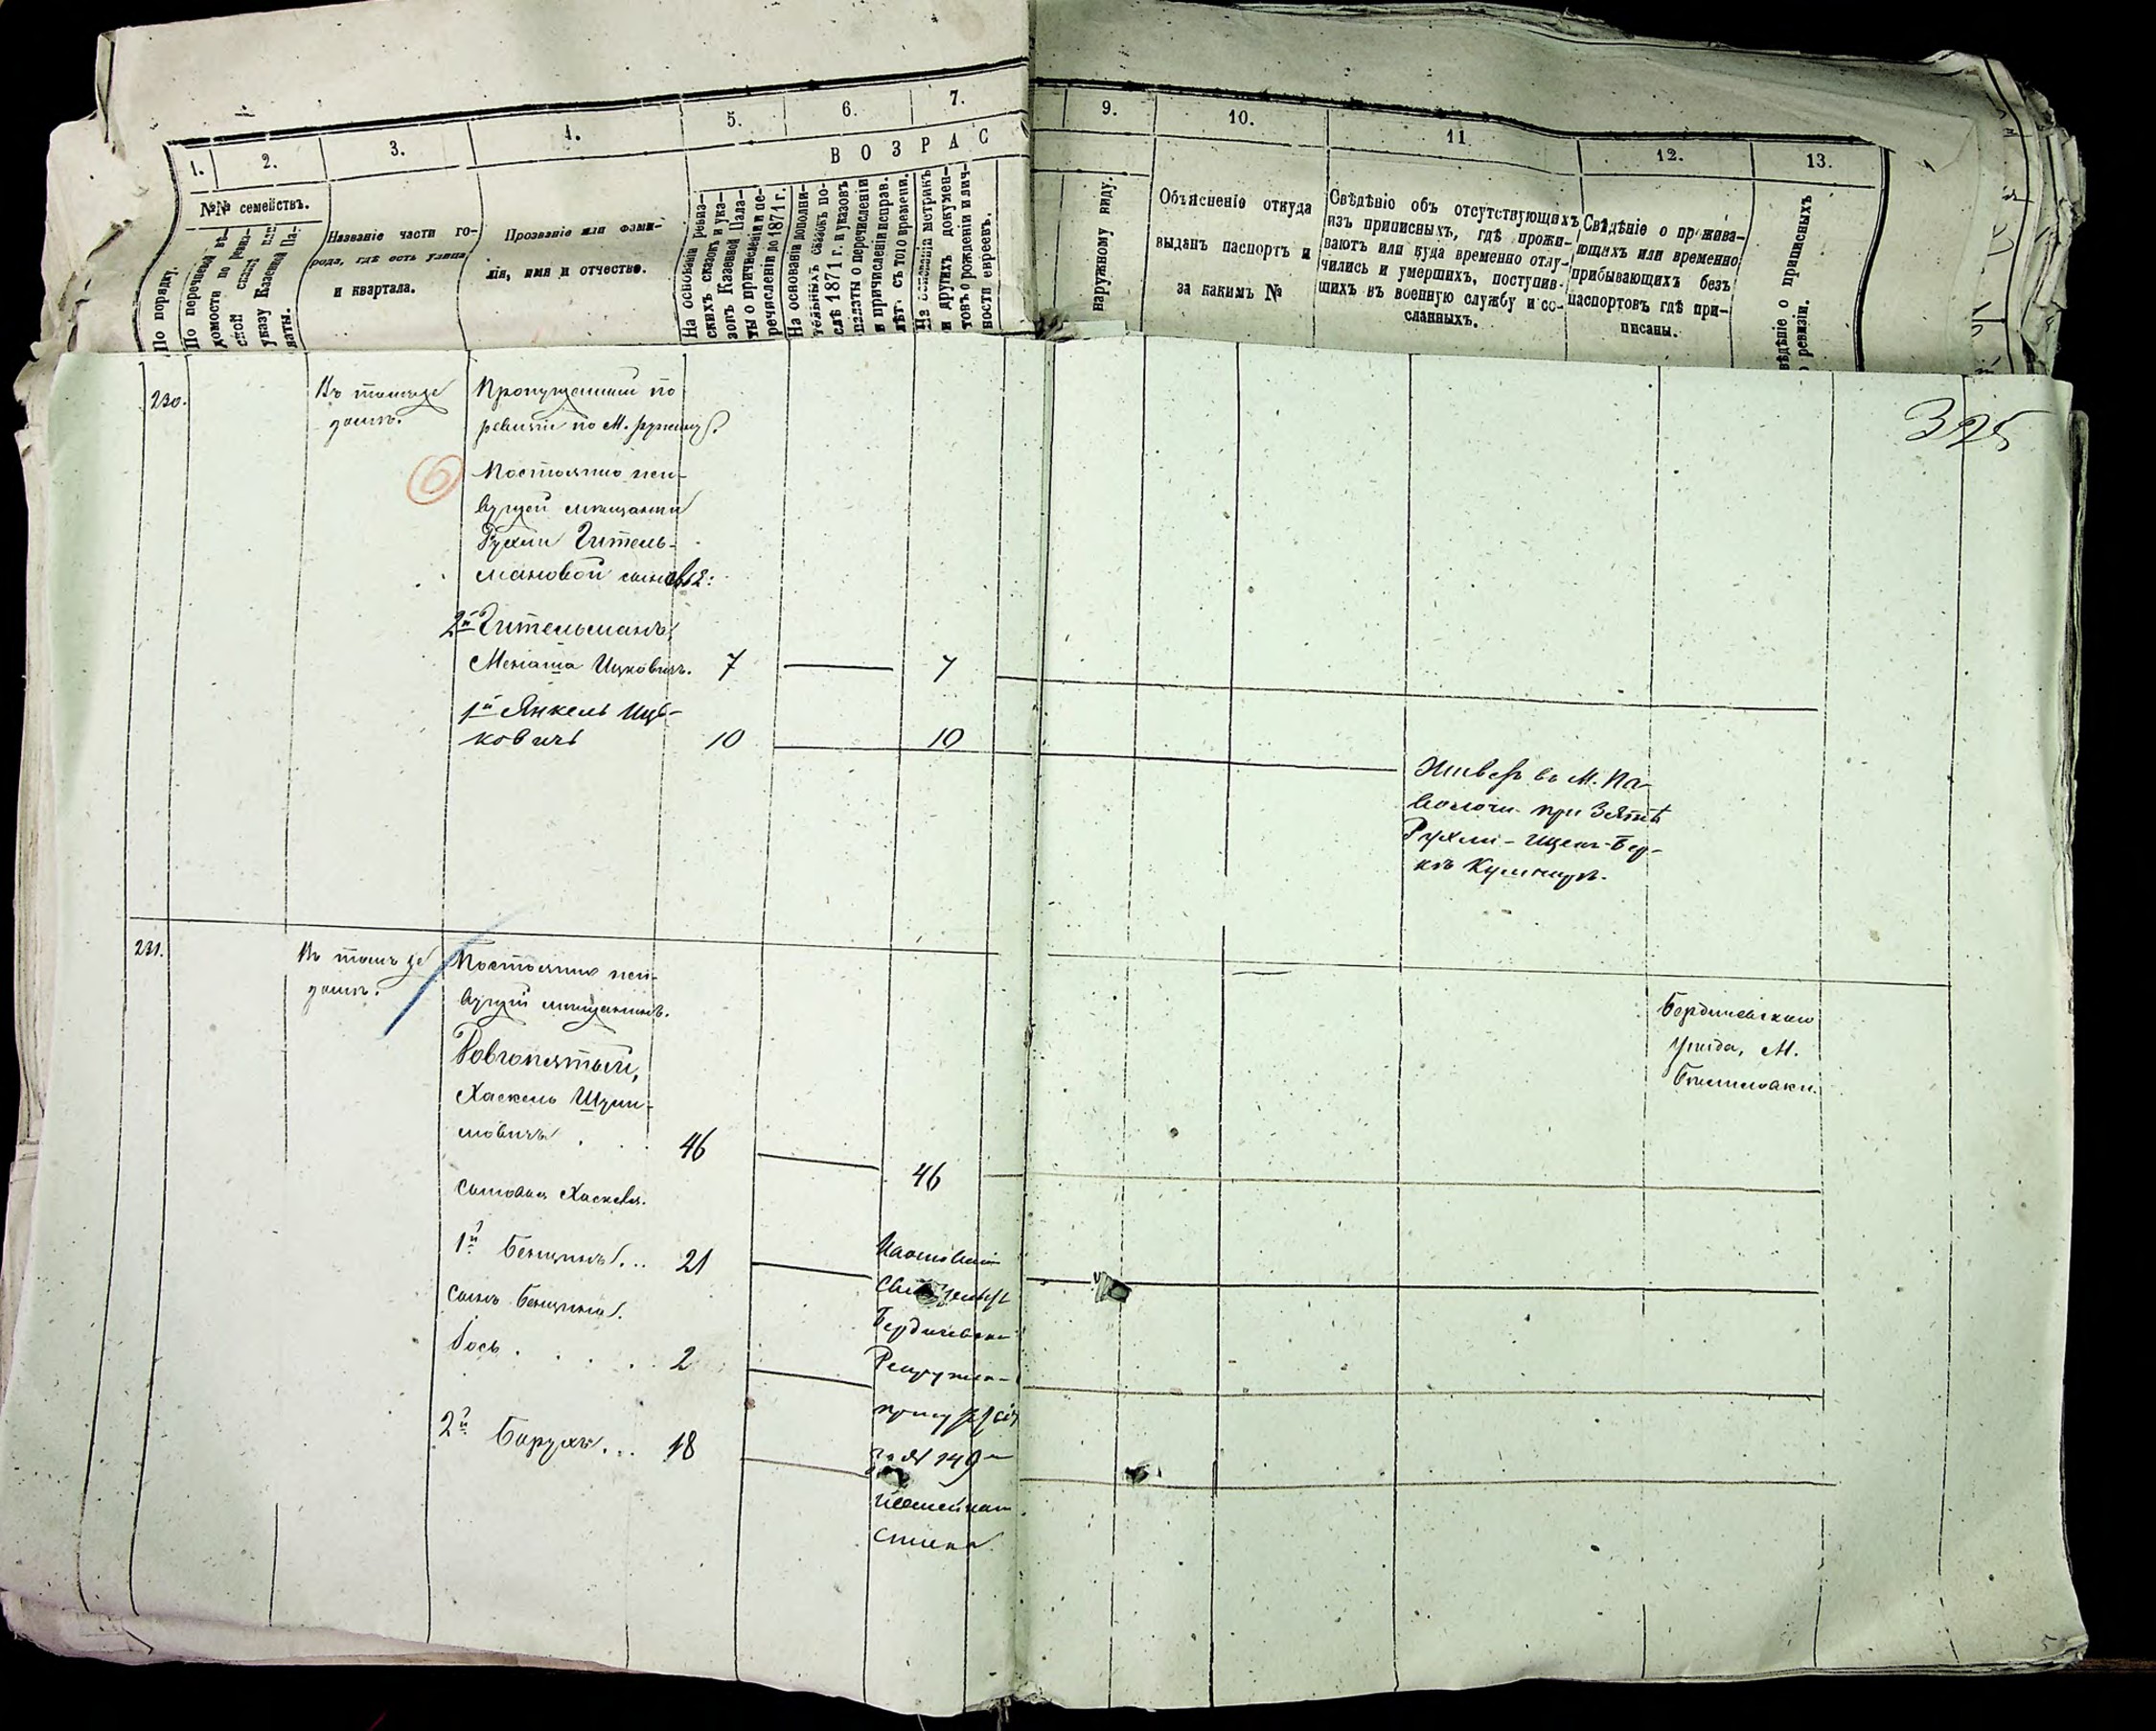 1.
2.
3.
4.
5.
6.
7.
9.
10.
11
12.
13.
ВОЗРАС
№№ семействъ.
По порядку.
По перечневой вѣ-
домости по ревиз-
ской сказкѣ или
указу Казенной Па-
латы.
Названіе части го-
рода, гдѣ есть улица
и квартала.
Прозваніе или фами-
лія, имя и отчество.
На основаніи ревиз-
скихъ сказокъ и ука-
зовъ Казенной Пала-
ты о причисленіи и пе-
речисленіи до 1871 г.
На основаніи дополни-
тельныхъ сказокъ по-
слѣ 1871 г. и указовъ
палаты о перечисленіи
и причисленіи исправ.
лѣтъ съ того времени.
На основаніи метрикъ
и другихъ докумен-
товъ о рожденіи и лич-
ности евреевъ.
наружному виду.
Объясненіе откуда
выданъ паспортъ и
за какимъ №
Свѣдѣніе объ отсутствующихъ
изъ приписныхъ, гдѣ прожи-
ваютъ или куда временно отлу-
чились и умершихъ, поступив-
шихъ въ военную службу и со-
сланныхъ.
Свѣдѣніе о прожива-
ющихъ или временно
прибывающихъ безъ
паспортовъ гдѣ при-
писаны.
вѣдѣніе о приписныхъ
ревизіи.
325
230.
Въ томъ же
домѣ.
Пропущенный по
ревизіи по М.
6
Постоянно жи-
вущей мѣщанки
Рухли Гитель-
мановой сыновья:
2й Гительманъ,
Менаша Ицковичъ. 7 7
1й Янкель Иц-
ковичъ 10 10
Живетъ въ М. Па-
волочи при Зятѣ
Рухли - Ицекъ-Бер-
къ
231.
Въ томъ же
домѣ.
Постоянно жи-
вущій мѣщанинъ.
Довгопятый,
Хаскель Шули-
мовичъ 46 46
Бердичевскаго
Уѣзда, М.
Бѣлиловки.
Сыновья Хаскеля.
1й Бенціонъ... 21
Сынъ Бенціона.
Іось.... 2
2й Борухъ... 18
На основаніи
Бердичевска
за № 149